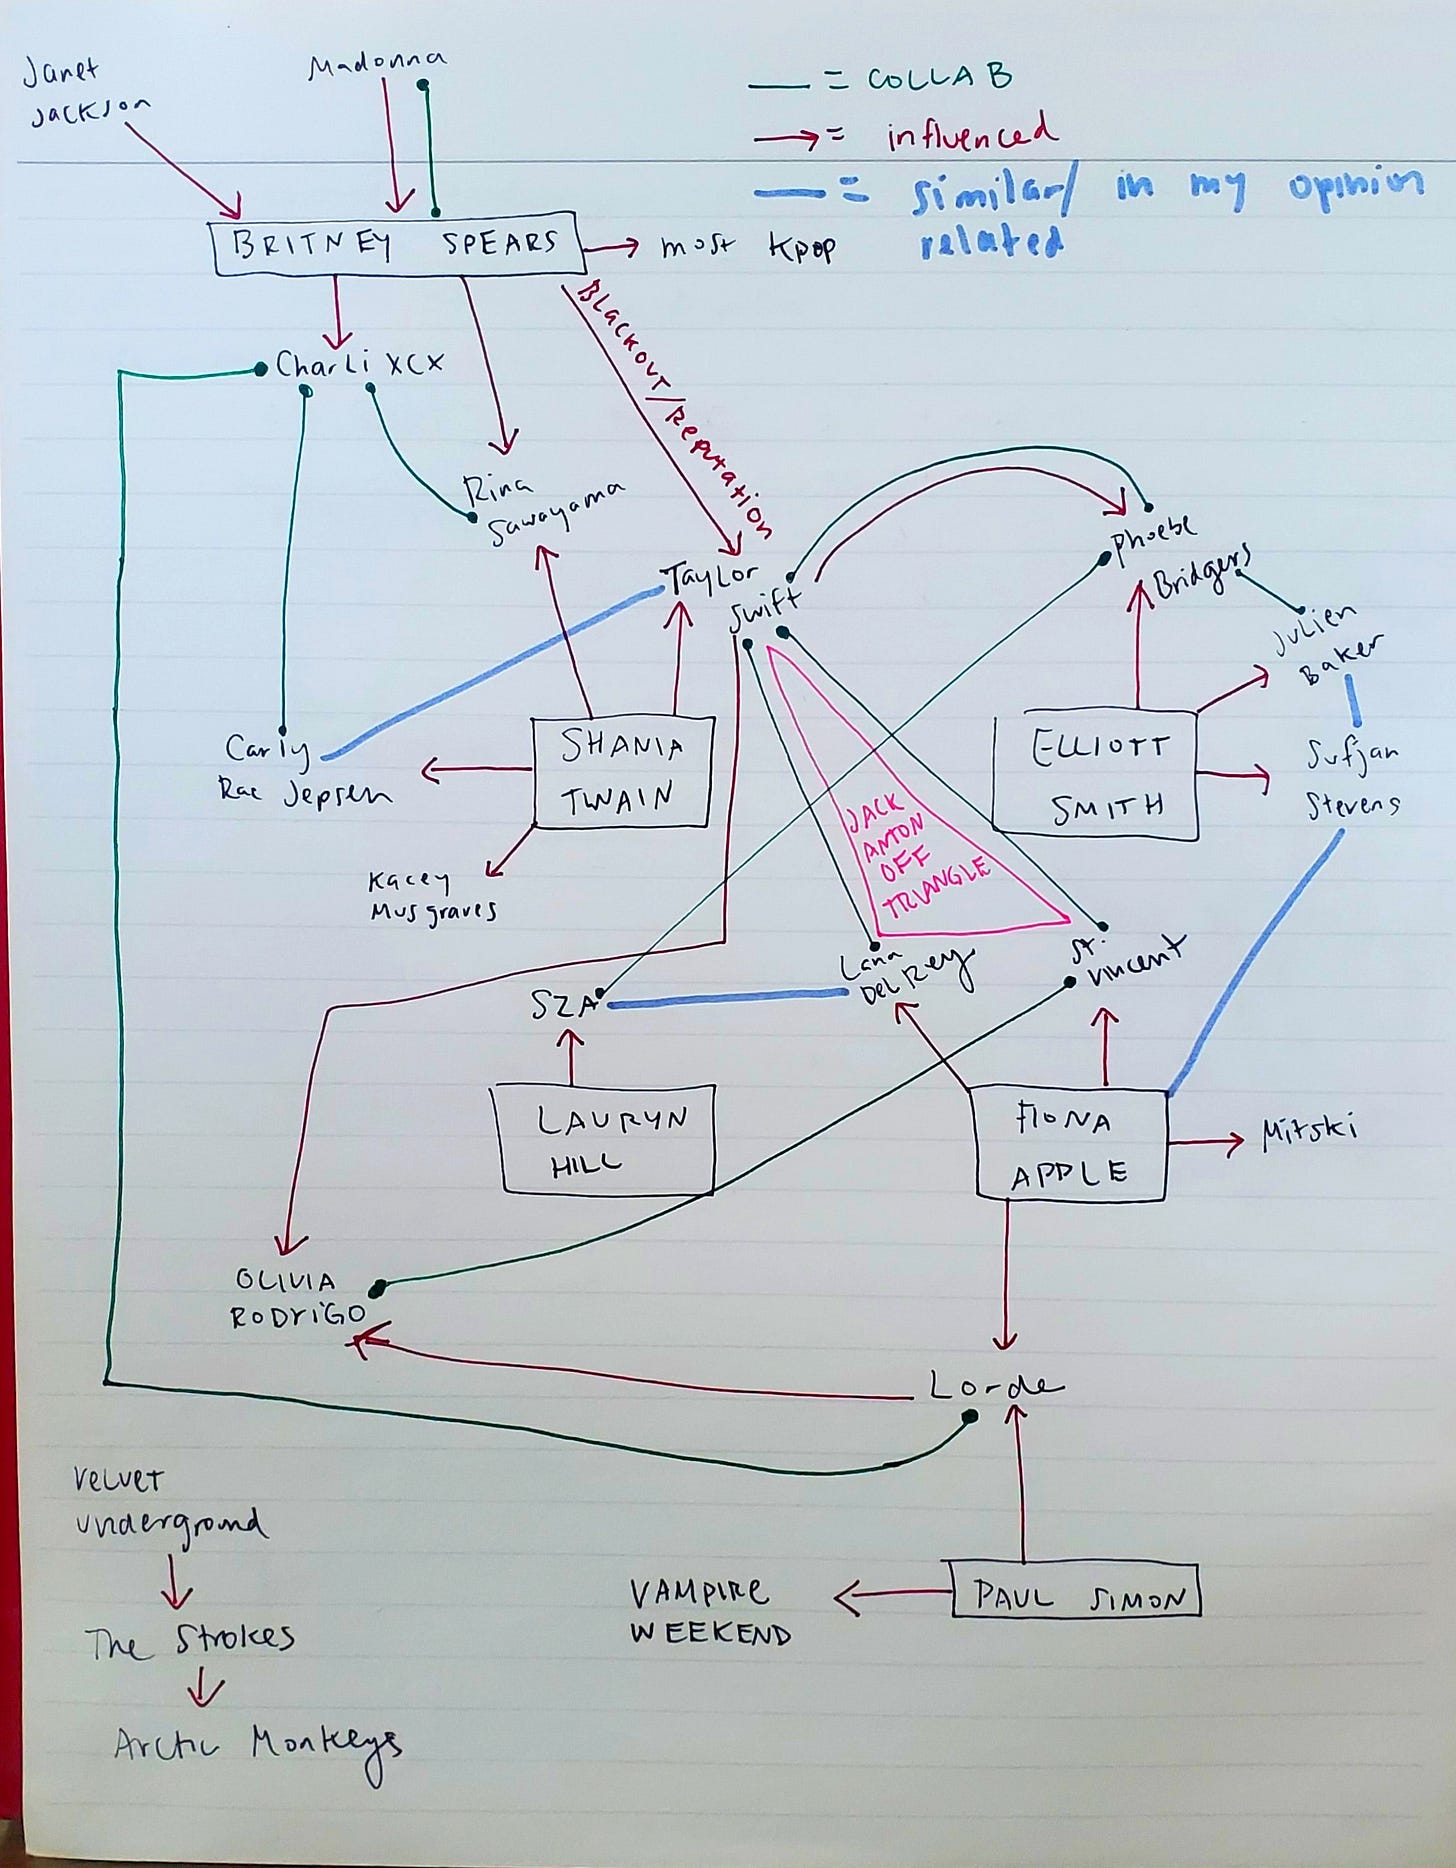 Janet
Jackson
Madonna
= COLLAB
= influenced
= similar/ in my opinion
related
BRITNEY SPEARS
most Kpop
BLACKOUT/Reputation
CharLi XCX
Rina
Sawayama
TayLor
Swift
Phoebe
Bridgers
JuLien
Baker
Carly
Rae Jepsen
SHANIA
TWAIN
ELLIOTT
SMITH
Sufjan
Stevens
JACK
ANTON
OFF
TRIANGLE
Kacey
Musgraves
SZA
Lana
DeL Rey
St.
Vincent
LAURYN
HILL
FIONA
APPLE
Mitski
OLIVIA
RODRiGO
Lorde
VeLVET
underground
The Strokes
Arctic Monkeys
VAMPIRE
WEEKEND
PAUL SIMON